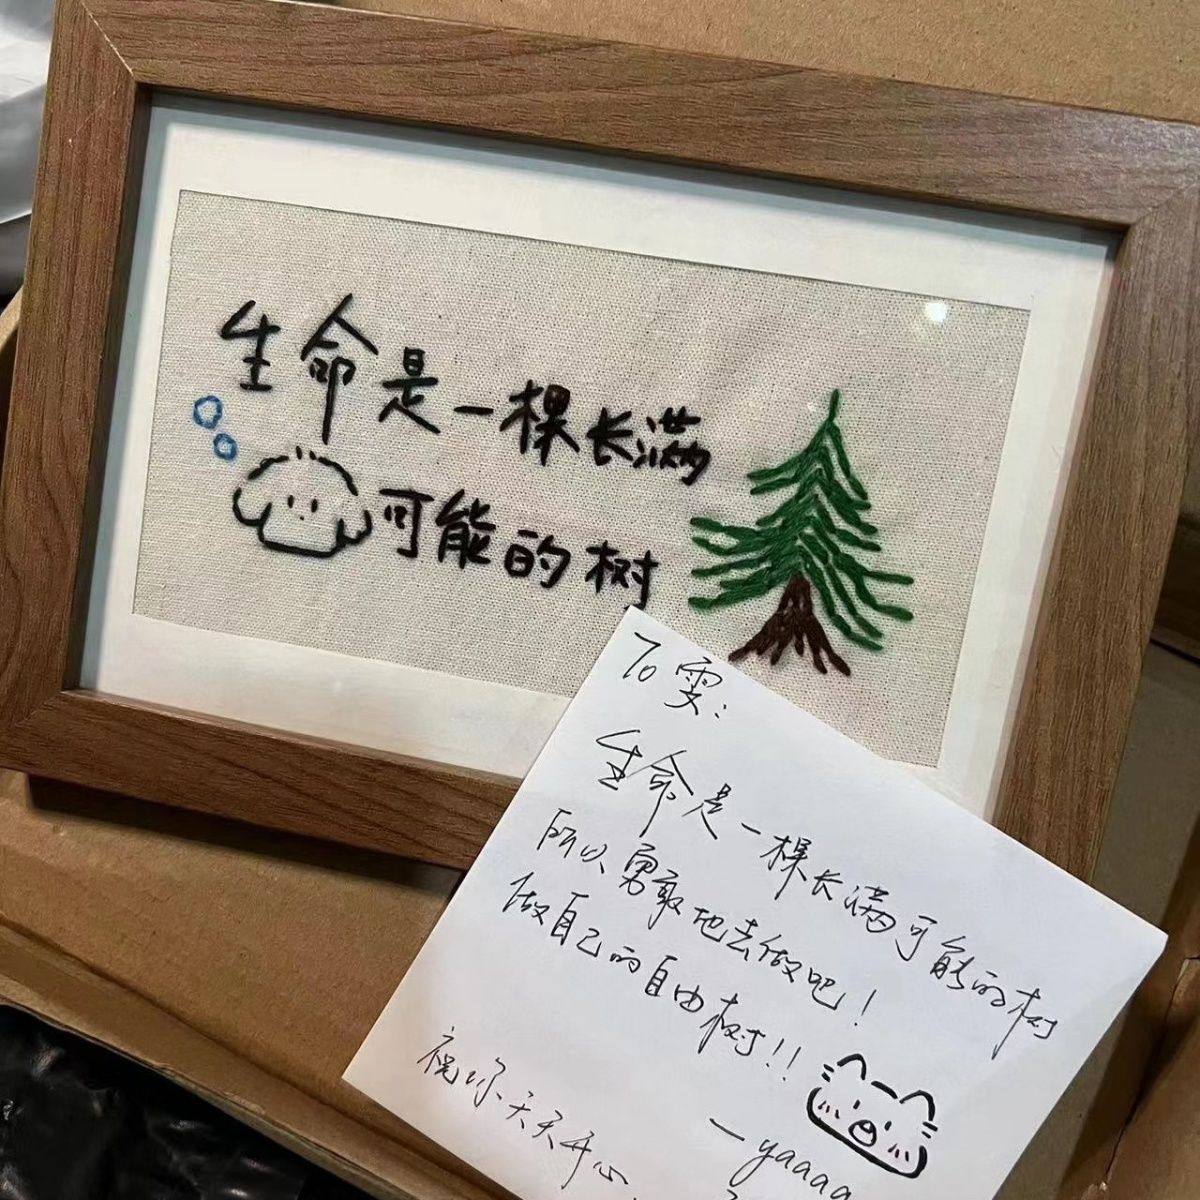 生命是一棵长满
可能的树
To 雯:
生命是一棵长满可能的树
所以勇敢地去做吧!
做自己的自由树!!
—yaaaa
祝你天天开心